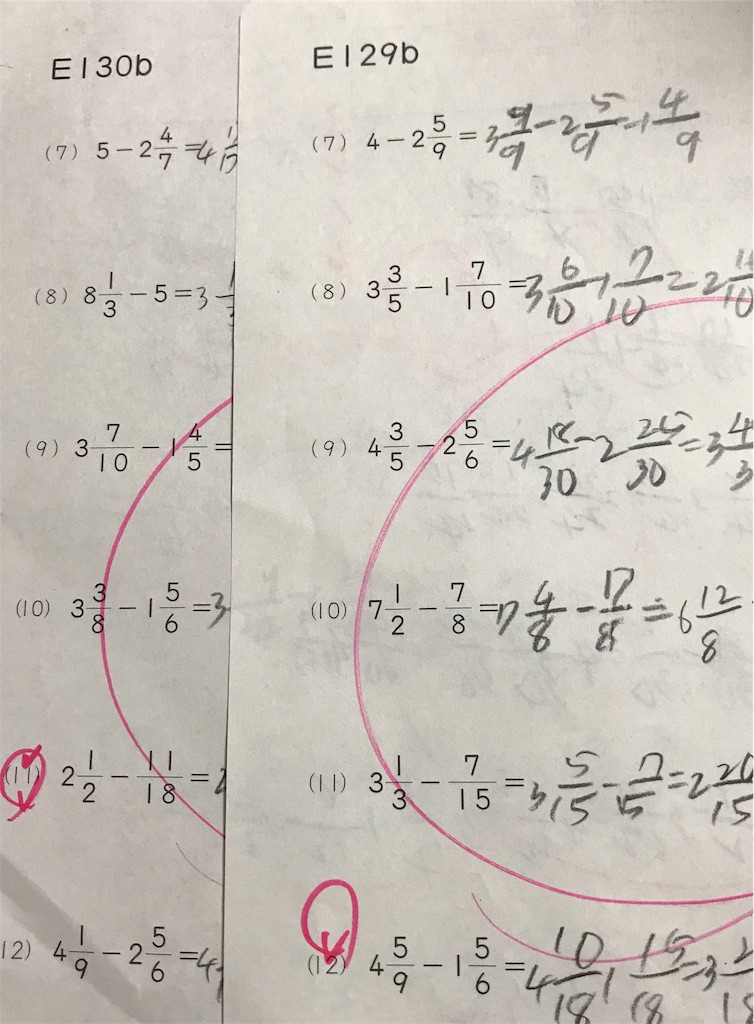 E130b
(7) 5 − 2 4/7 = 4
(8) 8 1/3 − 5 = 3
(9) 3 7/10 − 1 4/5 =
(10) 3 3/8 − 1 5/6 = 3
(11) 2 1/2 − 11/18 = 2
12) 4 1/9 − 2 5/6 = 4
E129b
(7) 4 − 2 5/9 = 3 9/9 − 2 5/9 = 1 4/9
(8) 3 3/5 − 1 7/10 = 3 6/10 − 1 7/10 = 2
(9) 4 3/5 − 2 5/6 = 4 18/30 − 2 25/30 = 3
(10) 7 1/2 − 7/8 = 7 4/8 − 7/8 = 6 12/8
(11) 3 1/3 − 7/15 = 3 5/15 − 7/15 = 2 20/15
(12) 4 5/9 − 1 5/6 = 4 10/18 1 15/18 = 3